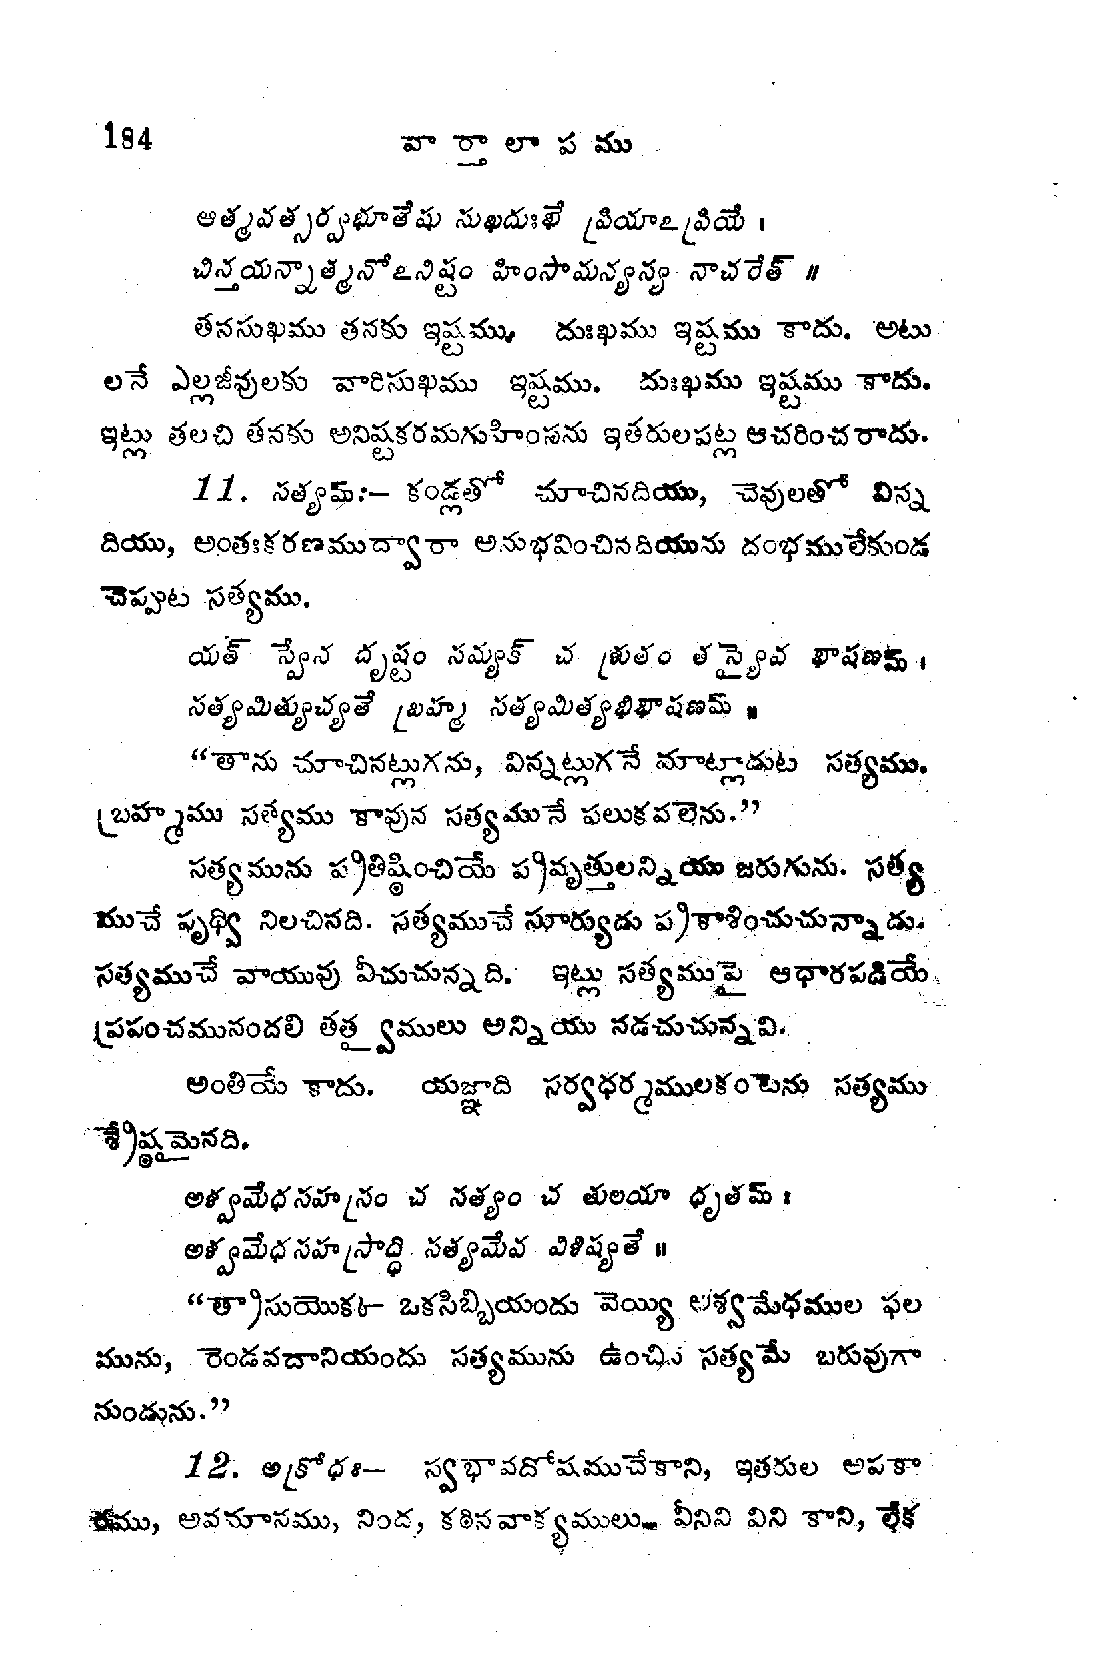 184 వార్తాలాపము
ఆత్మవత్సర్వభూతేషు సుఖదుఃఖే ప్రియాఽప్రియే ।
చిన్తయన్నాత్మనోఽనిష్టం హింసామన్యస్య నాచరేత్ ॥
తనసుఖము తనకు ఇష్టము, దుఃఖము ఇష్టము కాదు. అటు
లనే ఎల్లజీవులకు వారిసుఖము ఇష్టము. దుఃఖము ఇష్టము కాదు.
ఇట్లు తలచి తనకు అనిష్టకరమగుహింసను ఇతరులపట్ల ఆచరించరాదు.
11. సత్యమ్:– కండ్లతో చూచినదియు, చెవులతో విన్న
దియు, అంతఃకరణముద్వారా అనుభవించినదియును దంభములేకుండ
చెప్పుట సత్యము.
యత్ స్వేన దృష్టం సమ్యక్ చ శ్రుతం తస్యైవ భాషణమ్ ।
సత్యమిత్యుచ్యతే బ్రహ్మ సత్యమిత్యభిభాషణమ్ ॥
“తాను చూచినట్లుగను, విన్నట్లుగనే మాట్లాడుట సత్యము.
బ్రహ్మము సత్యేము కావున సత్యమునే పలుకవలెను.”
సత్యమును ప్రతిష్ఠించియే ప్రవృత్తులన్నియు జరుగును. సత్య
ముచే పృథ్వి నిలచినది. సత్యముచే సూర్యుడు ప్రకాశించుచున్నాడు.
సత్యముచే వాయువు వీచుచున్నది. ఇట్లు సత్యముపై ఆధారపడియే
ప్రపంచమునందలి తత్త్వములు అన్నియు నడచుచున్నవి.
అంతియే కాదు. యజ్ఞాది సర్వధర్మములకంటెను సత్యము
శ్రేష్ఠమైనది.
అశ్వమేధసహస్రం చ సత్యం చ తులయా ధృతమ్ ।
అశ్వమేధసహస్రాద్ధి సత్యమేవ విశిష్యతే ॥
“త్రాసుయొక్క ఒకసిబ్బియందు వెయ్యి అశ్వమేధముల ఫల
మును, రెండవదానియందు సత్యమును ఉంచిన సత్యమే బరువుగా
నుండును.”
12. అక్రోధః– స్వభావదోషముచేకాని, ఇతరుల అపకా
రము, అవమానము, నింద, కఠినవాక్యములు– వీనిని విని కాని, లేక